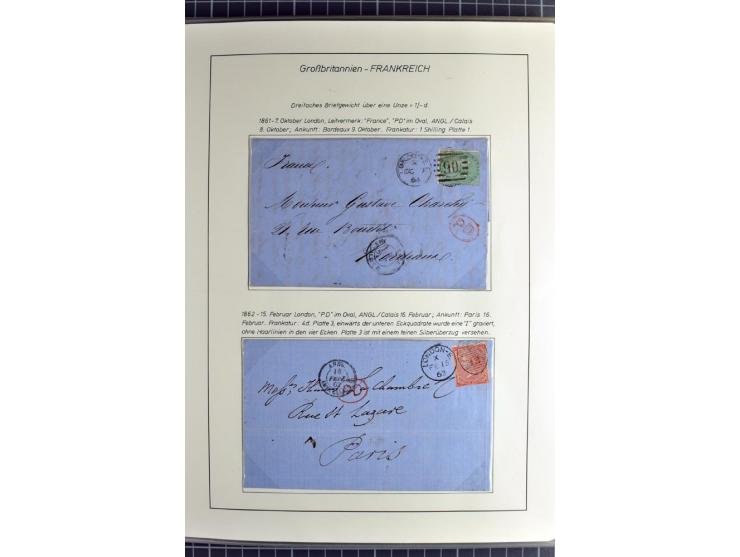 Großbritannien - FRANKREICH
Dreifaches Briefgewicht über eine Unze = 1/-d.
1861 - 7. Oktober London, Leitvermerk: "France", "PD" im Oval, ANGL./Calais
8. Oktober; Ankunft: Bordeaux 9. Oktober. Frankatur: 1 Shilling Platte 1.
France
90
Monsieur Gustave
PD
Bordeaux
1862 - 15. Februar London, "P.D." im Oval, ANGL./Calais 16. Februar; Ankunft: Paris 16.
Februar. Frankatur: 4d. Platte 3, einwärts der unteren Eckquadrate wurde eine "I" graviert,
ohne Haarlinien in den vier Ecken. Platte 3 ist mit einem feinen Silberüberzug versehen.
LONDON
X
62
ANGL.
16
PD
Rue St Lazare
Paris